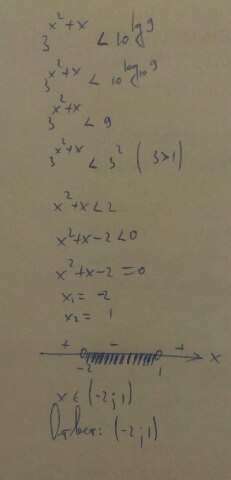 3^{x^2+x} < 10^{lg 9}
3^{x^2+x} < 10^{log_{10} 9}
3^{x^2+x} < 9
3^{x^2+x} < 3^2 (3>1)
x^2+x<2
x^2+x-2<0
x^2+x-2=0
x_1 = -2
x_2 = 1
+ - +
-2 1 x
x∈(-2;1)
Ответ: (-2;1)